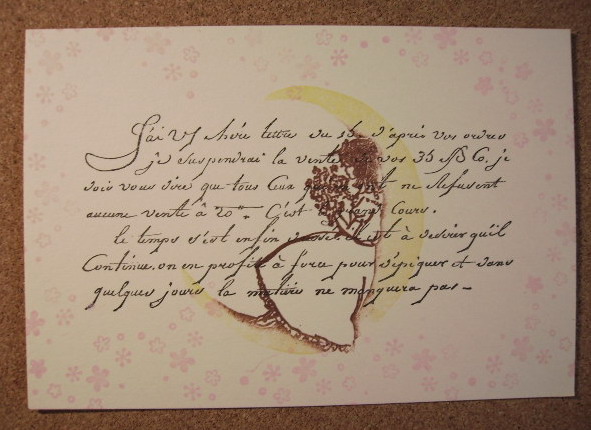 J'ai Vs chére lettre du 15. d'après vos ordres
je suspendrai la vente de vos 35 Co. je
dois vous dire que tous Ceux ne Refusent
aucune vente à 20 C'est Cours.
le temps s'est enfin à desirer qu'il
Continue. on en profite à force pour dépiquer et dans
quelques jours la matière ne manquera pas –